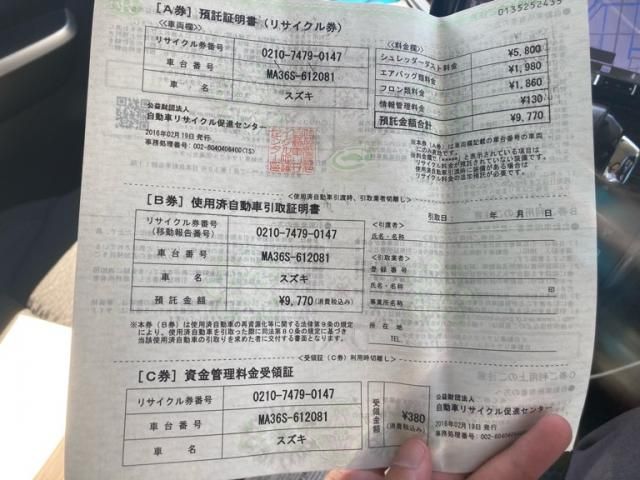 0135252435
[A券] 預託証明書(リサイクル券)
<車両欄>
リサイクル券番号 0210-7479-0147
車台番号 MA36S-612081
車名 スズキ
<料金欄>
シュレッダーダスト料金 ¥5,800
エアバッグ類料金 ¥1,980
フロン類料金 ¥1,860
情報管理料金 ¥130
預託金額合計 ¥9,770
公益財団法人
自動車リサイクル促進センター
2016年02月19日 発行
事務処理番号: 002-6040406400(TS)
[B券] 使用済自動車引取証明書
<使用済自動車引渡時、引取業者切離し>
リサイクル券番号
(移動報告番号) 0210-7479-0147
車台番号 MA36S-612081
車名 スズキ
預託金額 ¥9,770(消費税込み)
引取日: 年 月 日
<引渡者>
氏名・名称
<引取業者>
登録番号
氏名・名称 印
事業所名称
所在地
TEL
※本券(B券)は使用済自動車の再資源化等に関する法律第9条の規定
により、使用済自動車を引取った際に同法第80条の規定に基づき
当該使用済自動車の引取りを求めた者に交付する書面となります。
<受領証(C券)利用時切離し>
[C券] 資金管理料金受領証
リサイクル券番号 0210-7479-0147
車台番号 MA36S-612081
車名 スズキ
受領金額 ¥380
(消費税込み)
公益財団法人
自動車リサイクル促進センター
2016年02月19日 発行